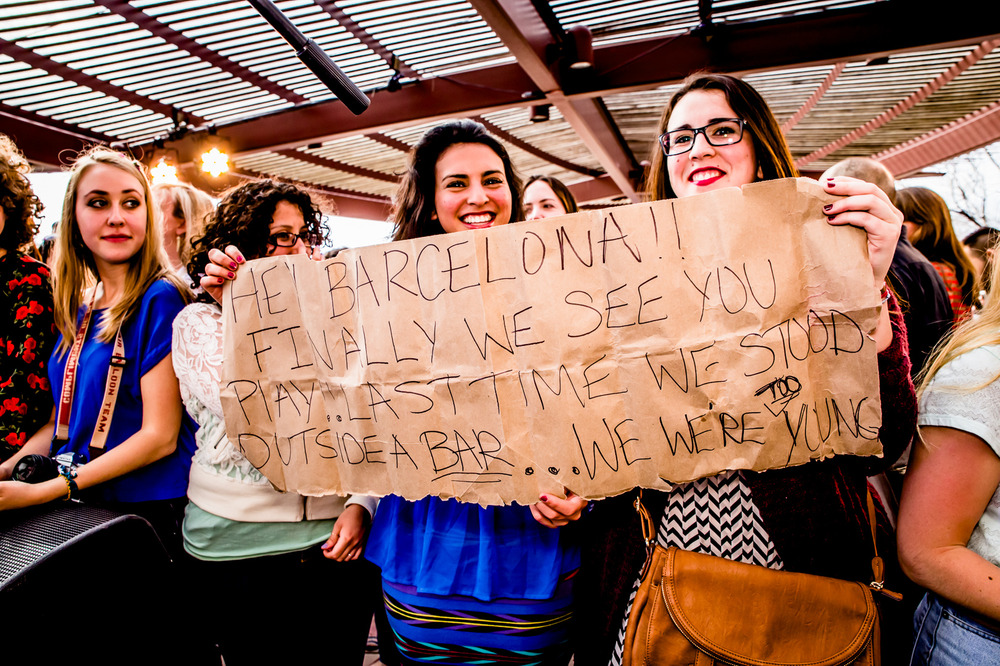 HE' BARCELONA!!
FINALLY WE SEE YOU
PLAY!! LAST TIME WE STOOD
OUTSIDE A BAR... WE WERE TOO YUNG
LDON TEAM